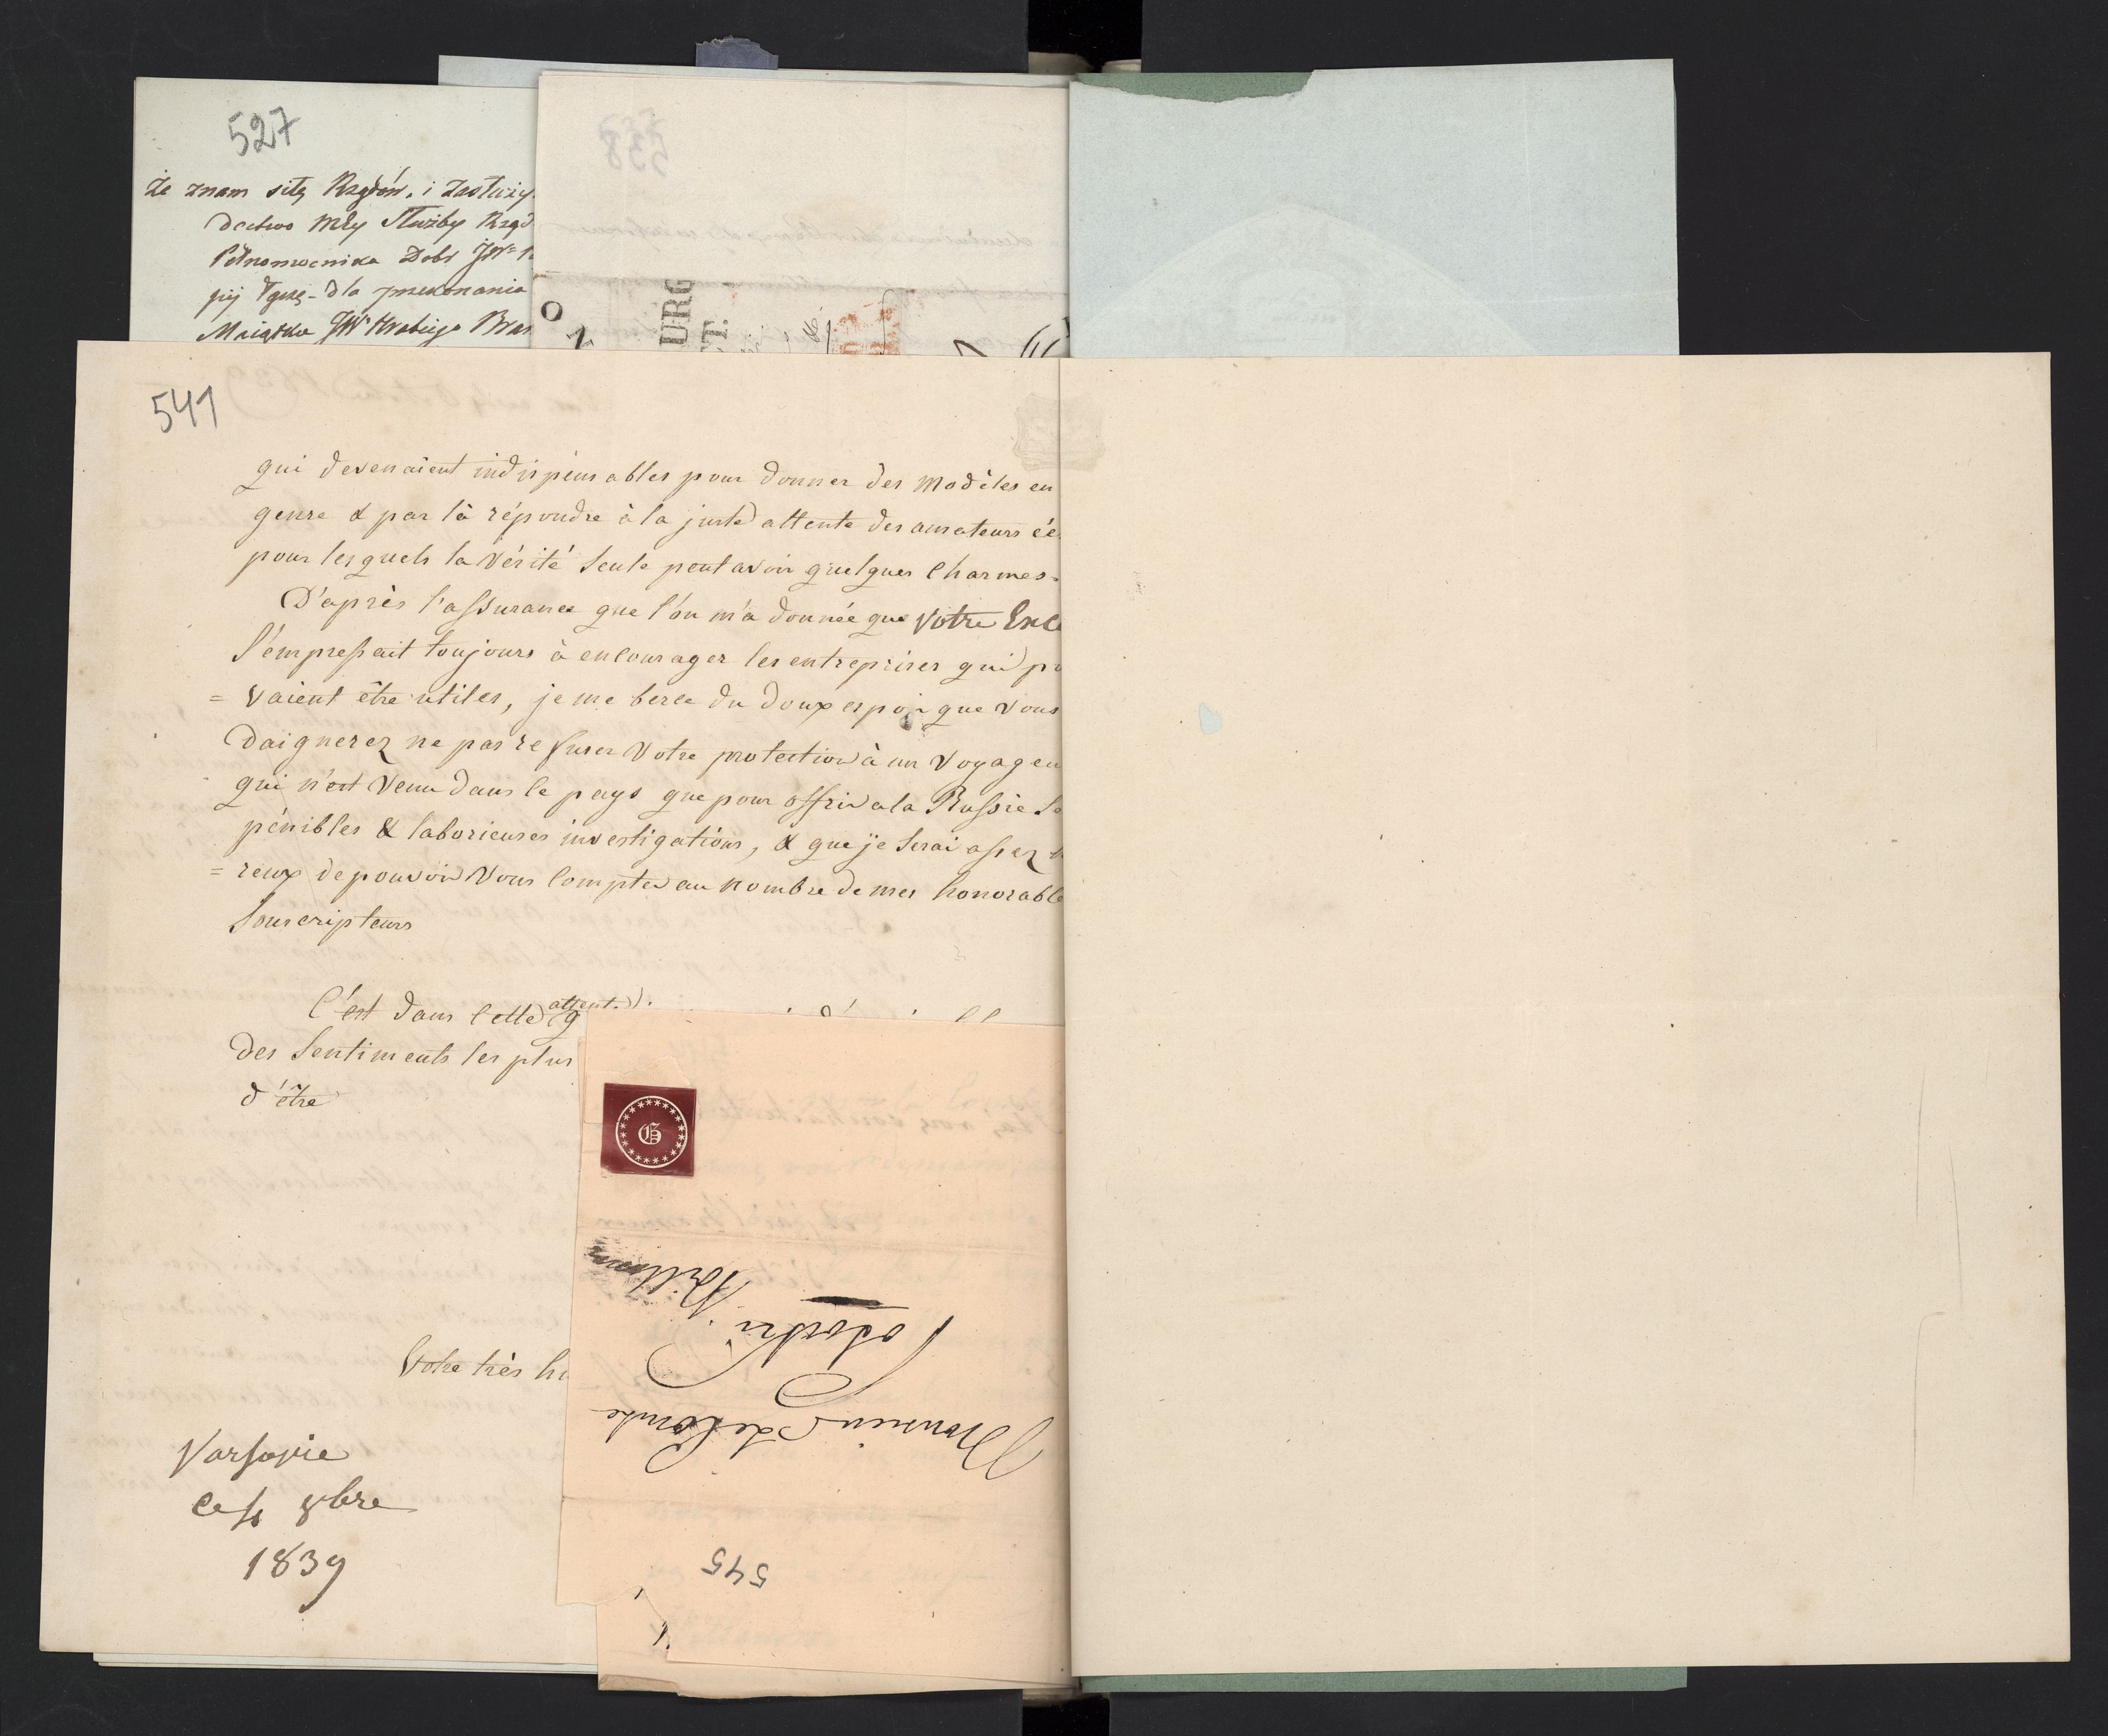 527
że znam siłę Rządów, i Zasłuży
dectwo mey Służby Rząd
Pełnomocnika Dobr JW
dla przekonania
Maiątku JW Hrabiego Bran
538
URG
T.
541
qui devenaient indispensables pour donner des modèles en
genre & par là répondre à la juste attente des amateurs éc
pour lesquels la vérité seule peut avoir quelques charmes.
D'après l'assurance que l'on m'a donnée que Votre Exce
s'empressait toujours à encourager les entreprises qui po
= vaient être utiles, je me berce du doux espoir que vous
daignerez ne pas refuser votre protection à un voyageu
qui n'est venu dans le pays que pour offrir a la Russie se
pénibles & laborieuses investigations, & que je serai assez h
= reux de pouvoir vous compter au nombre de mes honorable
souscripteurs
C'est dans cette attent.
des sentiments les plus
d'être
G
Votre très hu
Monsieur le Comte
Varsovie
ce 4 8bre
1839
545